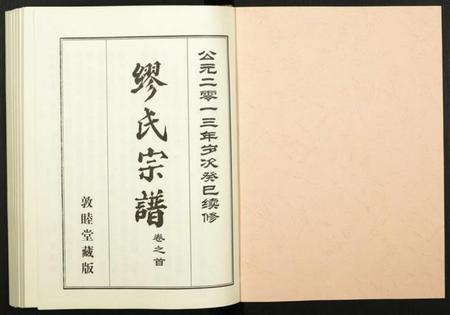 公元二零一三年岁次癸巳续修
缪氏宗譜
卷之首
敦睦堂藏版